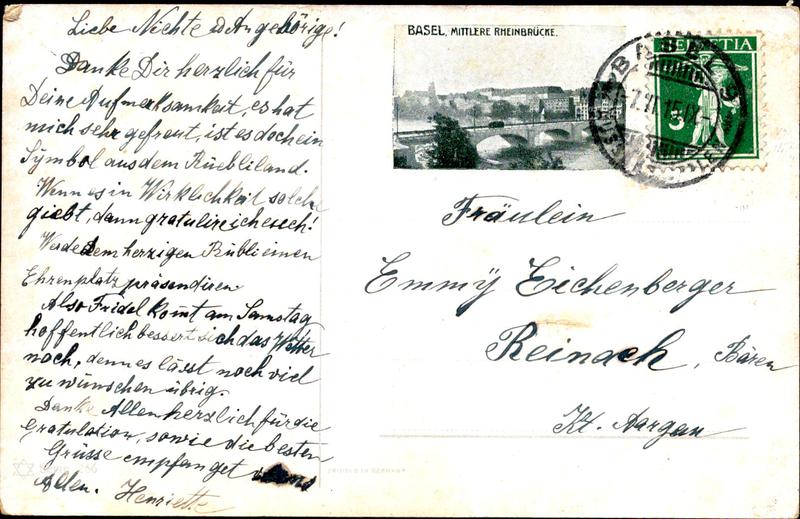 Liebe Nichte & Angehörige!
Danke Dir herzlich für
Deine Aufmerksamkeit, es hat
mich sehr gefreut, ist es doch ein
Symbol aus dem Rüebliland.
Wenn es in Wirklichkeit solche
giebt, dann gratuliere ich euch!
Werde dem herzigen Rübli einen
Ehrenplatz präsendiren
Also Fridel kommt am Samstag
hoffentlich bessert sich das Wetter
noch, denn es lässt noch viel
zu wünschen übrig.
Danke Allen herzlich für die
Gratulation, sowie die besten
Grüsse empfanget
Allen. Henriette
BASEL, MITTLERE RHEINBRÜCKE.
HELVETIA
5
Fräulein
Emmy Eichenberger
Reinach, Bären
Kt. Aargau
PRINTED IN GERMANY